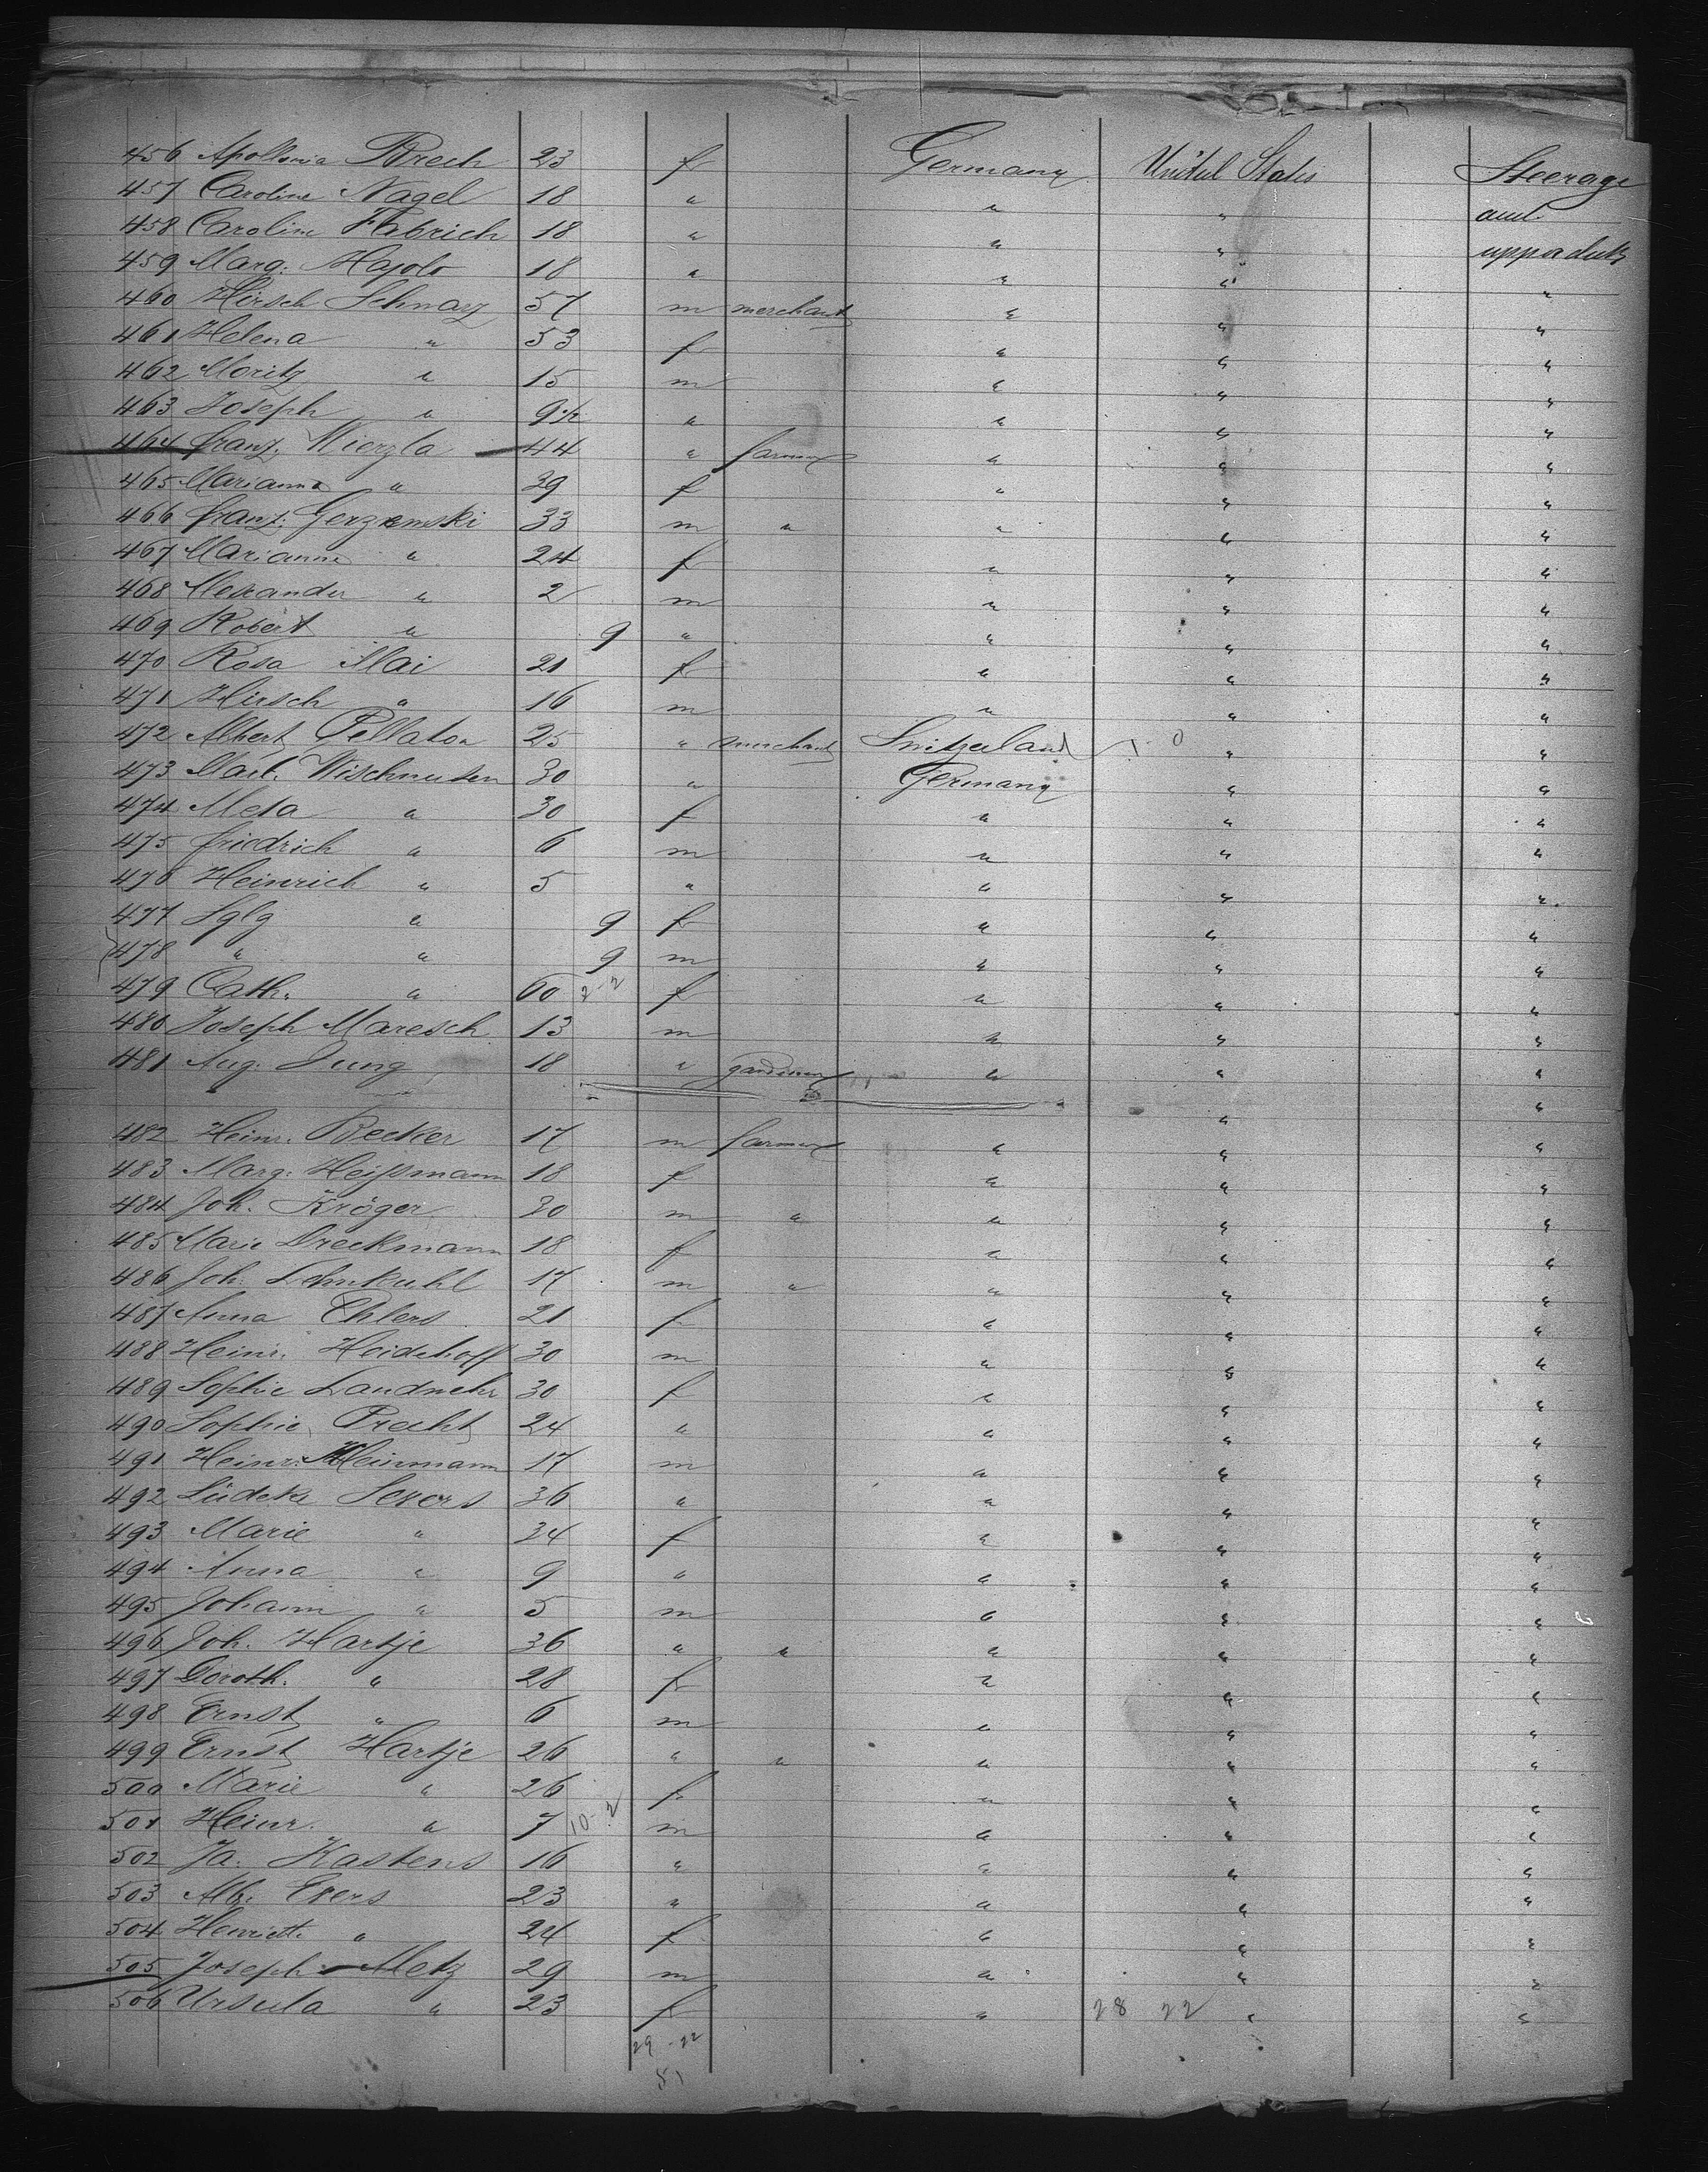 456 Apollonia Brech 23 f Germany United States Steerage
457 Caroline Nagel 18 " " " and
458 Caroline Habrich 18 " " " upper deck
459 Marg. Hajolo 18 " " " "
460 Hirsch Schwarz 57 m merchant " " "
461 Helena " 53 f " " "
462 Moritz " 15 m " " "
463 Joseph " 9½ " " " "
464 Franz Wierzla 44 " farmer " " "
465 Marianna " 39 f " " "
466 Franz. Gerzemski 33 m " " " "
467 Marianna " 24 f " " "
468 Alexander " 2 m " " "
469 Robert " 9 " " " "
470 Rosa Mai 21 f " " "
471 Hirsch " 16 m " " "
472 Albert Pellaton 25 " merchant Switzerland 1 0 " "
473 Mart. Wischnusen 30 " Germany " "
474 Meta " 30 f " " "
475 Friedrich " 6 m " " "
476 Heinrich " 5 " " " "
477 Sglg " 9 f " " "
478 " " 9 m " " "
479 Cath. " 60 2-2 f " " "
480 Joseph Maresch 13 m " " "
481 Aug. Jung 18 " gardener " " "
" "
482 Heinr. Becker 17 m farmer " " "
483 Marg. Heißmann 18 f " " "
484 Joh. Kröger 30 m " " " "
485 Marie Dreckmann 18 f " " "
486 Joh. Lehmkuhl 17 m " " " "
487 Anna Ehlers 21 f " " "
488 Heinr. Heidehoff 30 m " " "
489 Sophie Landwehr 30 f " " "
490 Sophie Precht 24 " " " "
491 Heinr. Meinmann 17 m " " "
492 Lüdeke Severs 36 " " " "
493 Marie " 34 f " " "
494 Anna " 9 " " " "
495 Johann " 5 m " " "
496 Joh. Hartje 36 " " " " "
497 Doroth. " 28 f " " "
498 Ernst " 6 m " " "
499 Ernst Hartje 26 " " " " "
500 Marie " 26 f " " "
501 Heinr. " 7 10-2 m " " "
502 Ja. Kastens 16 " " " "
503 Alb. Evers 23 " " " "
504 Henriette " 24 f " " "
505 Joseph Metz 29 m " " "
506 Ursula " 23 f " 28 22 " "
29-22
51